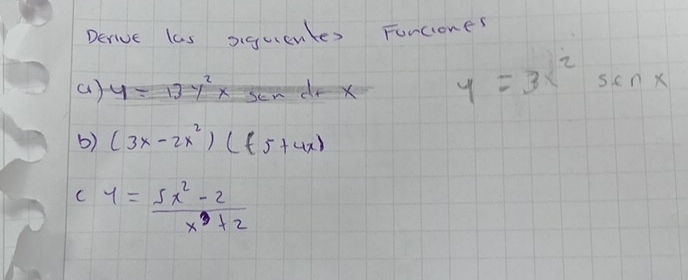 Derive las siguientes Funciones
a) y = 13y²x sen de x
y = 3x² sen x
b) (3x - 2x²) ((5 + 4x)
c y = 5x² - 2 / x³ + 2